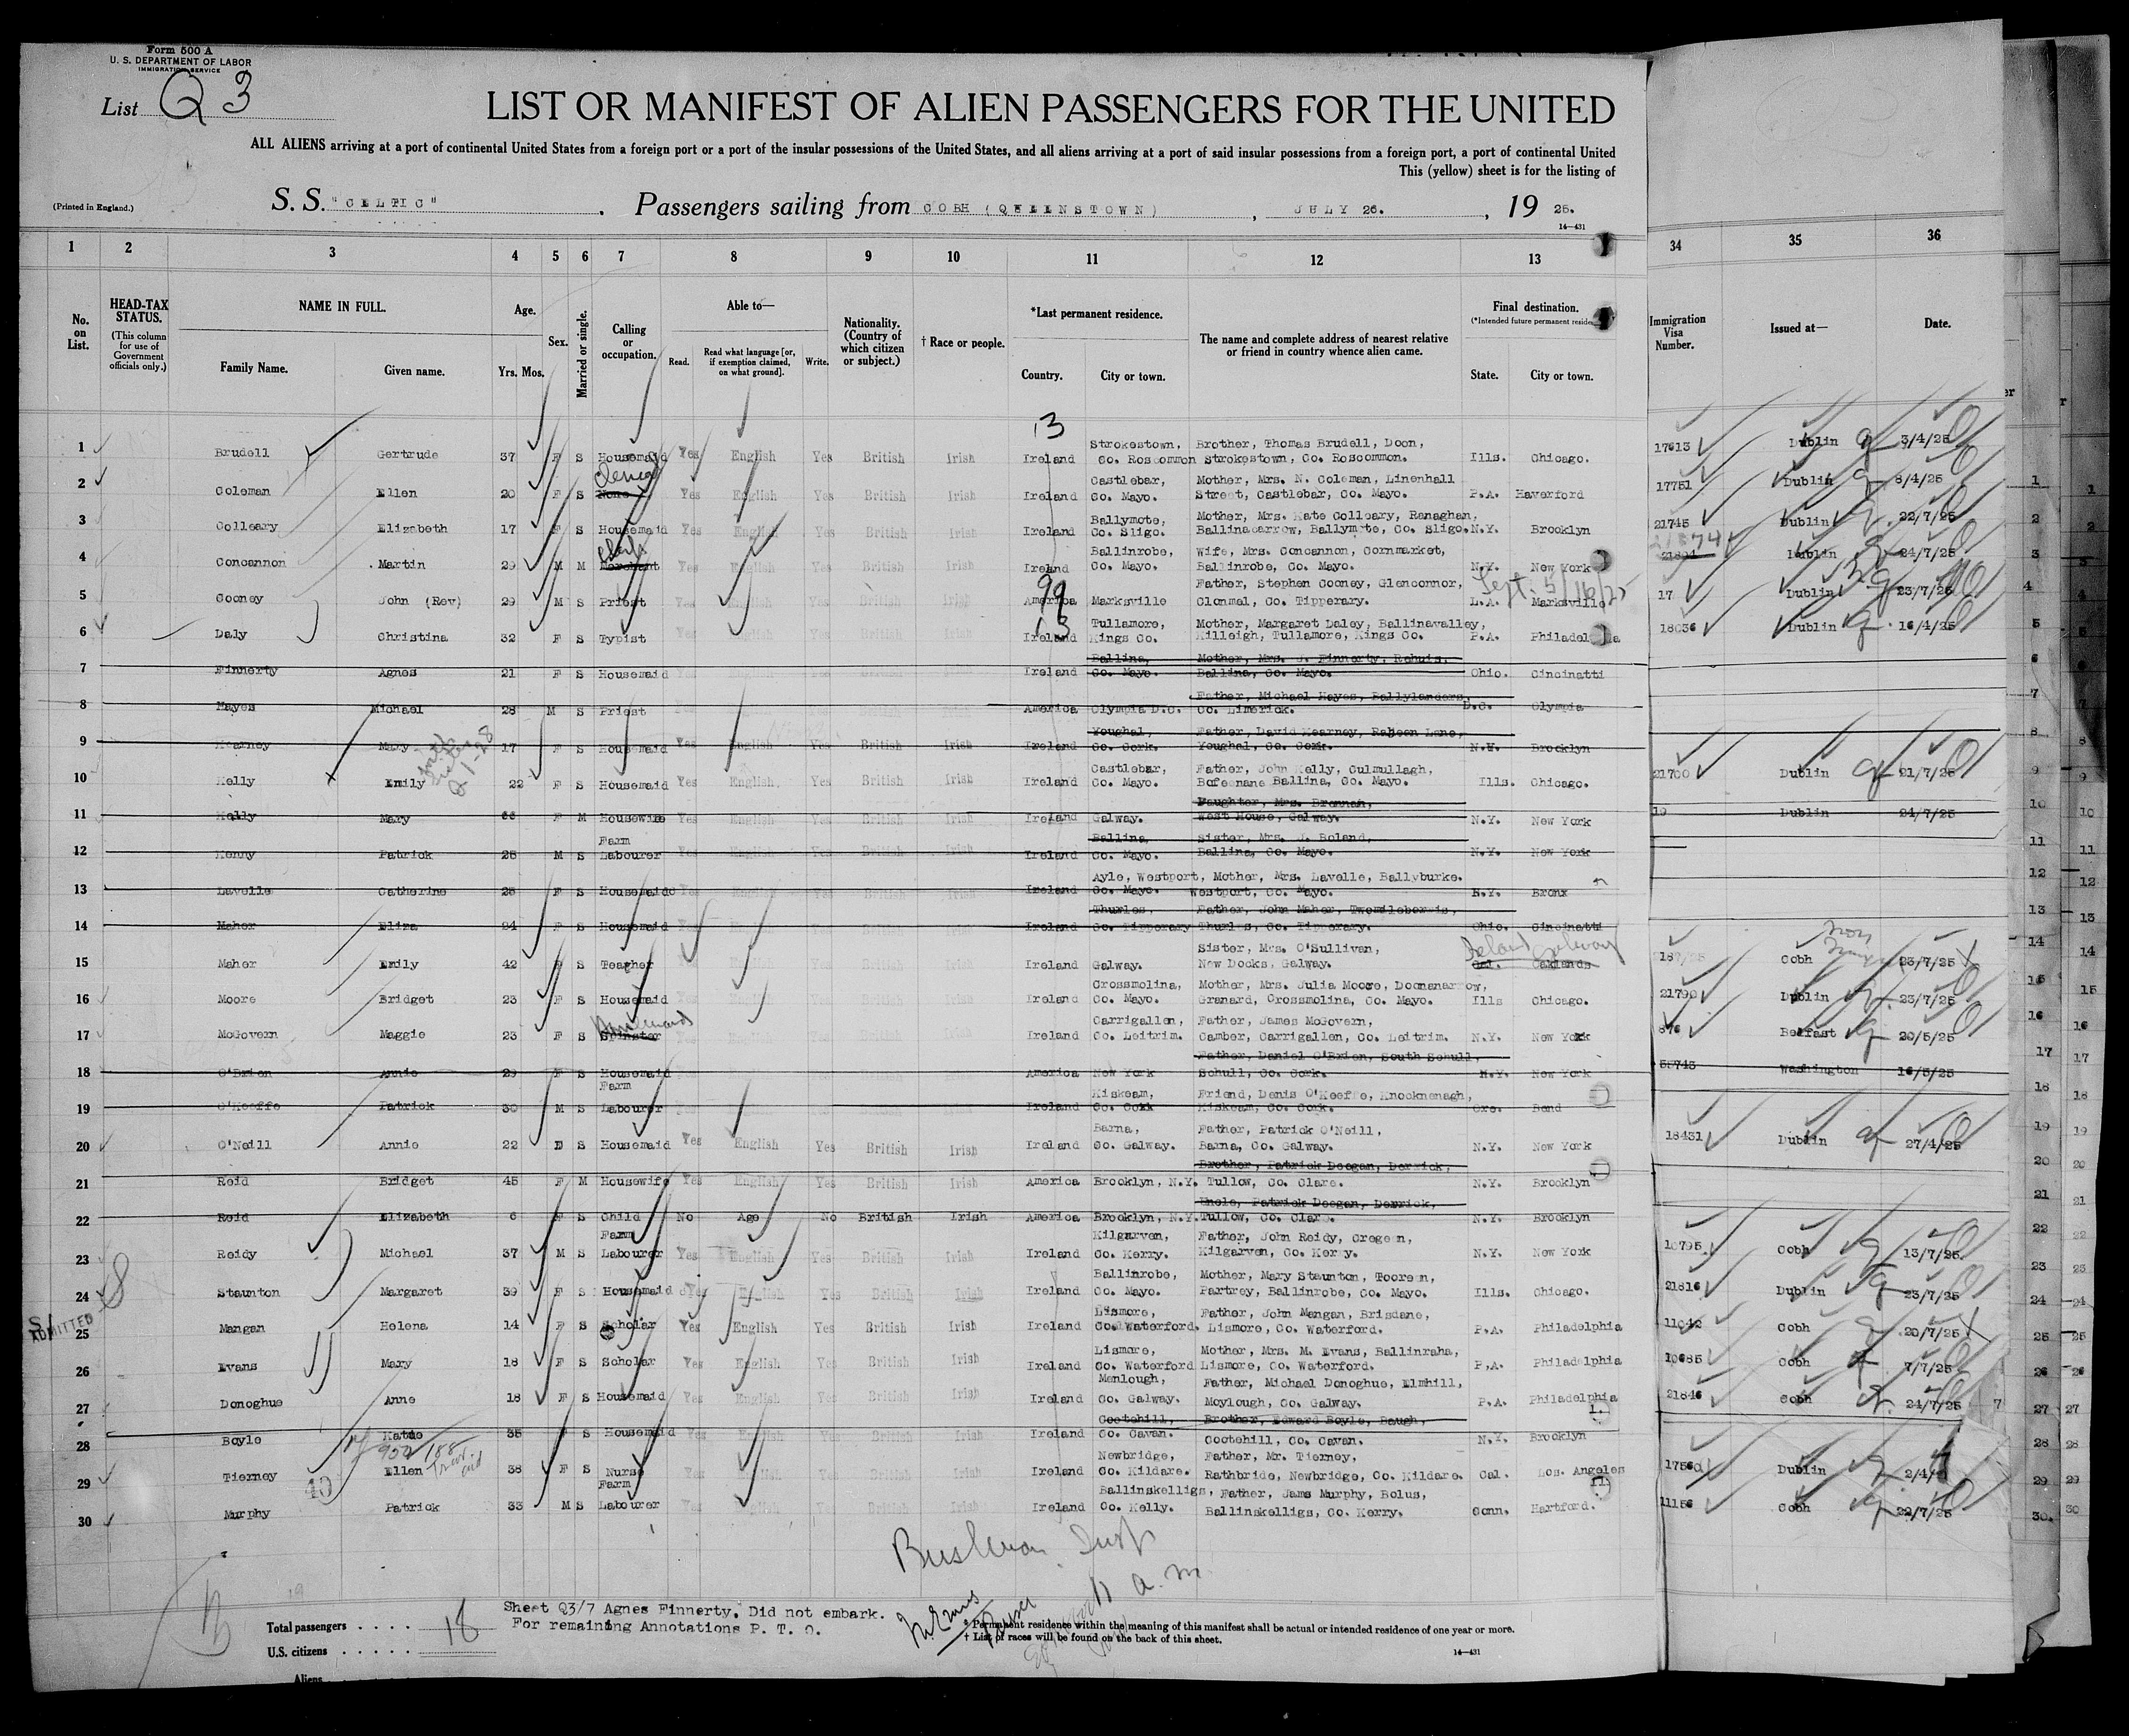 Form 500 A
U. S. DEPARTMENT OF LABOR
IMMIGRATION SERVICE
List Q 3
LIST OR MANIFEST OF ALIEN PASSENGERS FOR THE UNITED
ALL ALIENS arriving at a port of continental United States from a foreign port or a port of the insular possessions of the United States, and all aliens arriving at a port of said insular possessions from a foreign port, a port of continental United
This (yellow) sheet is for the listing of
(Printed in England.)
S. S. "CELTIC". Passengers sailing from COBH (QUEENSTOWN), JULY 26., 19 25.
14—431
1 2 3 4 5 6 7 8 9 10 11 12 13 34 35 36
No. on List.
HEAD-TAX STATUS.
(This column for use of Government officials only.)
NAME IN FULL.
Family Name. Given name.
Age.
Yrs. Mos.
Sex.
Married or single.
Calling or occupation.
Able to—
Read. Read what language [or, if exemption claimed, on what ground]. Write.
Nationality. (Country of which citizen or subject.)
† Race or people.
*Last permanent residence.
Country. City or town.
The name and complete address of nearest relative or friend in country whence alien came.
Final destination.
(*Intended future permanent
State. City or town.
Immigration Visa Number.
Issued at—
Date.
13
1 Brudell Gertrude 37 F S Housemaid Yes English Yes British Irish Ireland Strokestown, Co. Roscommon Brother, Thomas Brudell, Doon, Strokestown, Co. Roscommon. Ills. Chicago. 17613 Dublin 3/4/25
2 Coleman Ellen 20 F S None Yes English Yes British Irish Ireland Castlebar, Co. Mayo. Mother, Mrs. N. Coleman, Linenhall Street, Castlebar, Co. Mayo. P.A. Haverford 17751 Dublin 8/4/25
3 Colleary Elizabeth 17 F S Housemaid Yes English Yes British Irish Ireland Ballymote, Co. Sligo. Mother, Mrs. Kate Colleary, Ranaghan, Ballinacarrow, Ballymote, Co. Sligo. N.Y. Brooklyn 21745 Dublin 22/7/25
4 Concannon Martin 29 M M Merchant Clerk Yes English Yes British Irish Ireland Ballinrobe, Co. Mayo. Wife, Mrs. Concannon, Cornmarket, Ballinrobe, Co. Mayo. N.Y. New York Dublin 24/7/25
5 Cooney John (Rev) 29 M S Priest Yes English Yes British Irish America 99 Marksville Father, Stephen Cooney, Glenconnor, Clonmel, Co. Tipperary. L.A. Marksville 17 Dublin 23/7/25
13
6 Daly Christina 32 F S Typist Yes English Yes British Irish Ireland Tullamore, Kings Co. Mother, Margaret Daley, Ballinavalley, Killeigh, Tullamore, Kings Co. P.A. Philadel 18036 Dublin 16/4/25
7 Finnerty Agnes 21 F S Housemaid Ireland Ballina, Co. Mayo. Mother, Mrs. J. Finnerty, Rehuis, Ballina, Co. Mayo. Ohio. Cincinatti
8 Hayes Michael 28 M S Priest America Olympia D.C. Father, Michael Hayes, Ballylanders, Co. Limerick. D.C. Olympia
9 Kearney Mary 17 F S Housemaid Yes English Yes British Irish Ireland Youghal, Co. Cork. Father, David Kearney, Raheen Lane, Youghal, Co. Cork. N.Y. Brooklyn
10 Kelly Emily 22 F S Housemaid Yes English Yes British Irish Ireland Castlebar, Co. Mayo. Father, John Kelly, Culmullagh, Bofeenane Ballina, Co. Mayo. Ills. Chicago. 21700 Dublin 21/7/25
11 Kelly Mary F M Housewife Yes English Yes British Irish Ireland Galway. Daughter, Mrs. Brennan, West House, Galway. N.Y. New York 19 Dublin 24/7/25
12 Kenny Patrick 25 M S Farm Labourer Yes English Yes British Irish Ireland Ballina, Co. Mayo. Sister, Mrs. J. Boland, Ballina, Co. Mayo. N.Y. New York
13 Lavelle Catherine 25 F S Housemaid Yes English Yes British Irish Ireland Ayle, Westport, Co. Mayo. Mother, Mrs. Lavelle, Ballyburke. Westport, Co. Mayo. N.Y. Bronx
14 Maher Elina 24 F S Housemaid Ireland Thurles, Co. Tipperary Father, John Maher, Twomileborris, Thurles, Co. Tipperary. Ohio. Cincinatti
15 Maher Emily 42 F S Teacher Yes English Yes British Irish Ireland Galway. Sister, Mrs. O'Sullivan, New Docks, Galway. Cal. Oaklands Ireland Galway Cobh 23/7/25
16 Moore Bridget 23 F S Housemaid Yes British Irish Ireland Crossmolina, Co. Mayo. Mother, Mrs. Julia Moore, Doonanarrow, Granard, Crossmolina, Co. Mayo. Ills Chicago. 21790 Dublin 23/7/25
17 McGovern Maggie 23 F S Spinster Housemaid Yes English Yes British Irish Ireland Carrigallen, Co. Leitrim. Father, James McGovern, Camber, Carrigallen, Co. Leitrim. N.Y. New York 876 Belfast 20/5/25
18 O'Brien Annie 29 F S Housemaid America New York Father, Daniel O'Brien, South Schull, Schull, Co. Cork. N.Y. New York 58743 Washington 16/5/25
19 O'Keeffe Patrick 30 M S Farm Labourer Ireland Kiskeam, Co. Cork Friend, Denis O'Keeffe, Knocknenagh, Kiskeam, Co. Cork. Ore. Bend
20 O'Neill Annie 22 F S Housemaid Yes English Yes British Irish Ireland Barna, Co. Galway. Father, Patrick O'Neill, Barna, Co. Galway. N.Y. New York 18431 Dublin 27/4/25
21 Reid Bridget 45 F M Housewife Yes English Yes British Irish America Brooklyn, N.Y. Brother, Patrick Deegan, Derrick, Tullow, Co. Clare. N.Y. Brooklyn
22 Reid Elizabeth 6 F S Child No Age No British Irish America Brooklyn, N.Y. Uncle, Patrick Deegan, Derrick, Tullow, Co. Clare. N.Y. Brooklyn
23 Reidy Michael 37 M S Farm Labourer Yes English Yes British Irish Ireland Kilgarven, Co. Kerry. Father, John Reidy, Kilgarven, Co. Kerry. N.Y. New York 10795 Cobh 13/7/25.
24 Staunton Margaret 39 F S Housemaid Yes English Yes British Irish Ireland Ballinrobe, Co. Mayo. Mother, Mary Staunton, Tooreen, Partrey, Ballinrobe, Co. Mayo. Ills. Chicago. 21816 Dublin 23/7/25
ADMITTED
25 Mangan Helena 14 F S Scholar Yes English Yes British Irish Ireland Lismore, Co. Waterford. Father, John Mangan, Brisdane, Lismore, Co. Waterford. P.A. Philadelphia 11042 Cobh 20/7/25
26 Evans Mary 18 F S Scholar Yes English Yes British Irish Ireland Lismore, Co. Waterford Mother, Mrs. M. Evans, Ballinraha, Lismore, Co. Waterford. P.A. Philadelphia 10685 Cobh 7/7/25
27 Donoghue Anne 18 F S Housemaid Yes English Yes British Irish Ireland Menlough, Co. Galway. Father, Michael Donoghue, Elmhill, Moylough, Co. Galway. P.A. Philadelphia 21846 Cobh 24/7/25
28 Boyle Katie 35 F S Housemaid Yes English Yes British Irish Ireland Cootehill, Co. Cavan. Brother, Edward Boyle, Baugh, Cootehill, Co. Cavan. N.Y. Brooklyn
29 Tierney Ellen 38 F S Nurse Yes English Yes British Irish Ireland Newbridge, Co. Kildare. Father, Mr. Tierney, Rathbride, Newbridge, Co. Kildare. Cal. Los. Angeles 17560 Dublin 2/4/
30 Murphy Patrick 33 M S Farm Labourer Yes English Yes British Irish Ireland Ballinskelligs, Co. Kelly. Father, Jams Murphy, Bolus, Ballinskelligs, Co. Kerry. Conn. Hartford. 11156 Cobh 22/7/25
11 a.m.
Sheet Q3/7 Agnes Finnerty. Did not embark.
For remaining Annotations P. T. O.
Total passengers . . . . 18
U.S. citizens . . . . .
Aliens
* Permanent residence within the meaning of this manifest shall be actual or intended residence of one year or more.
† List of races will be found on the back of this sheet.
14—431